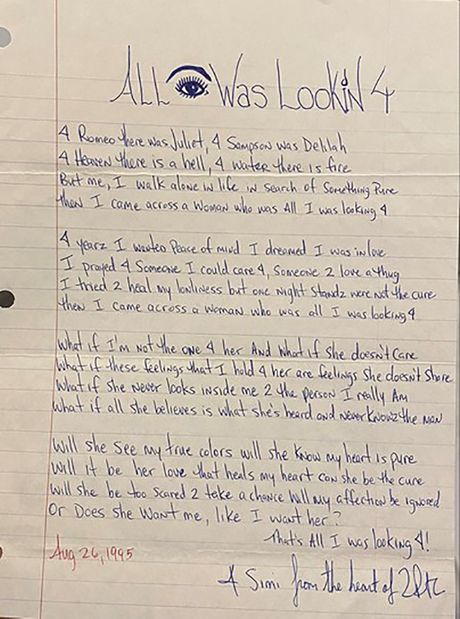 ALL 👁 Was Lookin 4
4 Romeo there was Juliet, 4 Sampson was Delilah
4 Heaven there is a hell, 4 water there is fire
But me, I walk alone in life in search of Something Pure
then I came across a woman who was All I was looking 4
4 yearz I wanted Peace of mind I dreamed I was in love
I prayed 4 Someone I could care 4, Someone 2 love a thug
I tried 2 heal my lonliness but one night standz were not the cure
then I came across a woman who was all I was looking 4
What if I'm not the one 4 her And what if she doesn't care
What if these feelings that I hold 4 her are feelings she doesn't share
What if she never looks inside me 2 the person I really Am
What if all she believes is what she's heard and never knowz the man
Will she see my true colors will she know my heart is pure
Will it be her love that heals my heart can she be the cure
Will she be too scared 2 take a chance will my affection be ignored
Or Does she want me, like I want her?
That's All I was looking 4!
Aug 26, 1995
4 Simi from the heart of 2Pac